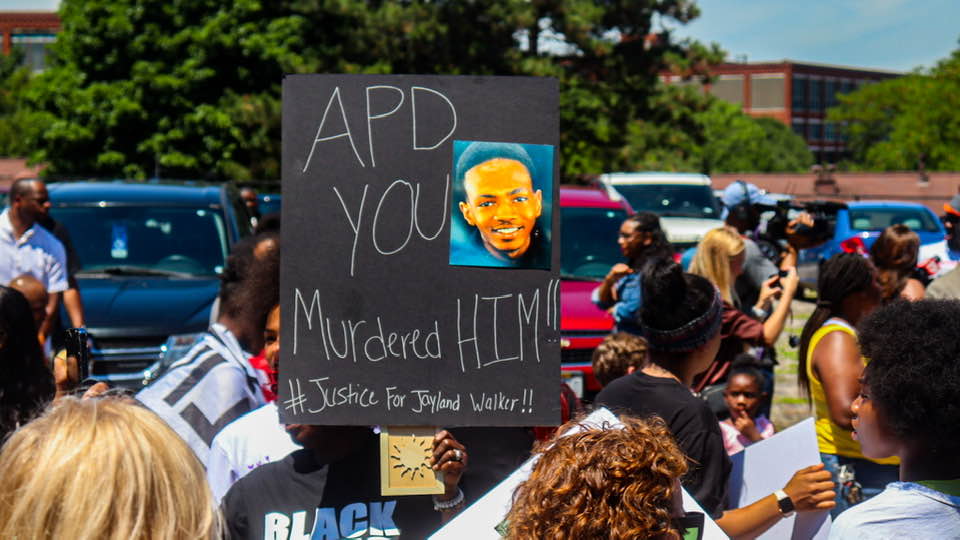 APD
YOU
Murdered HIM!!
#Justice For Jayland Walker!!
BLACK